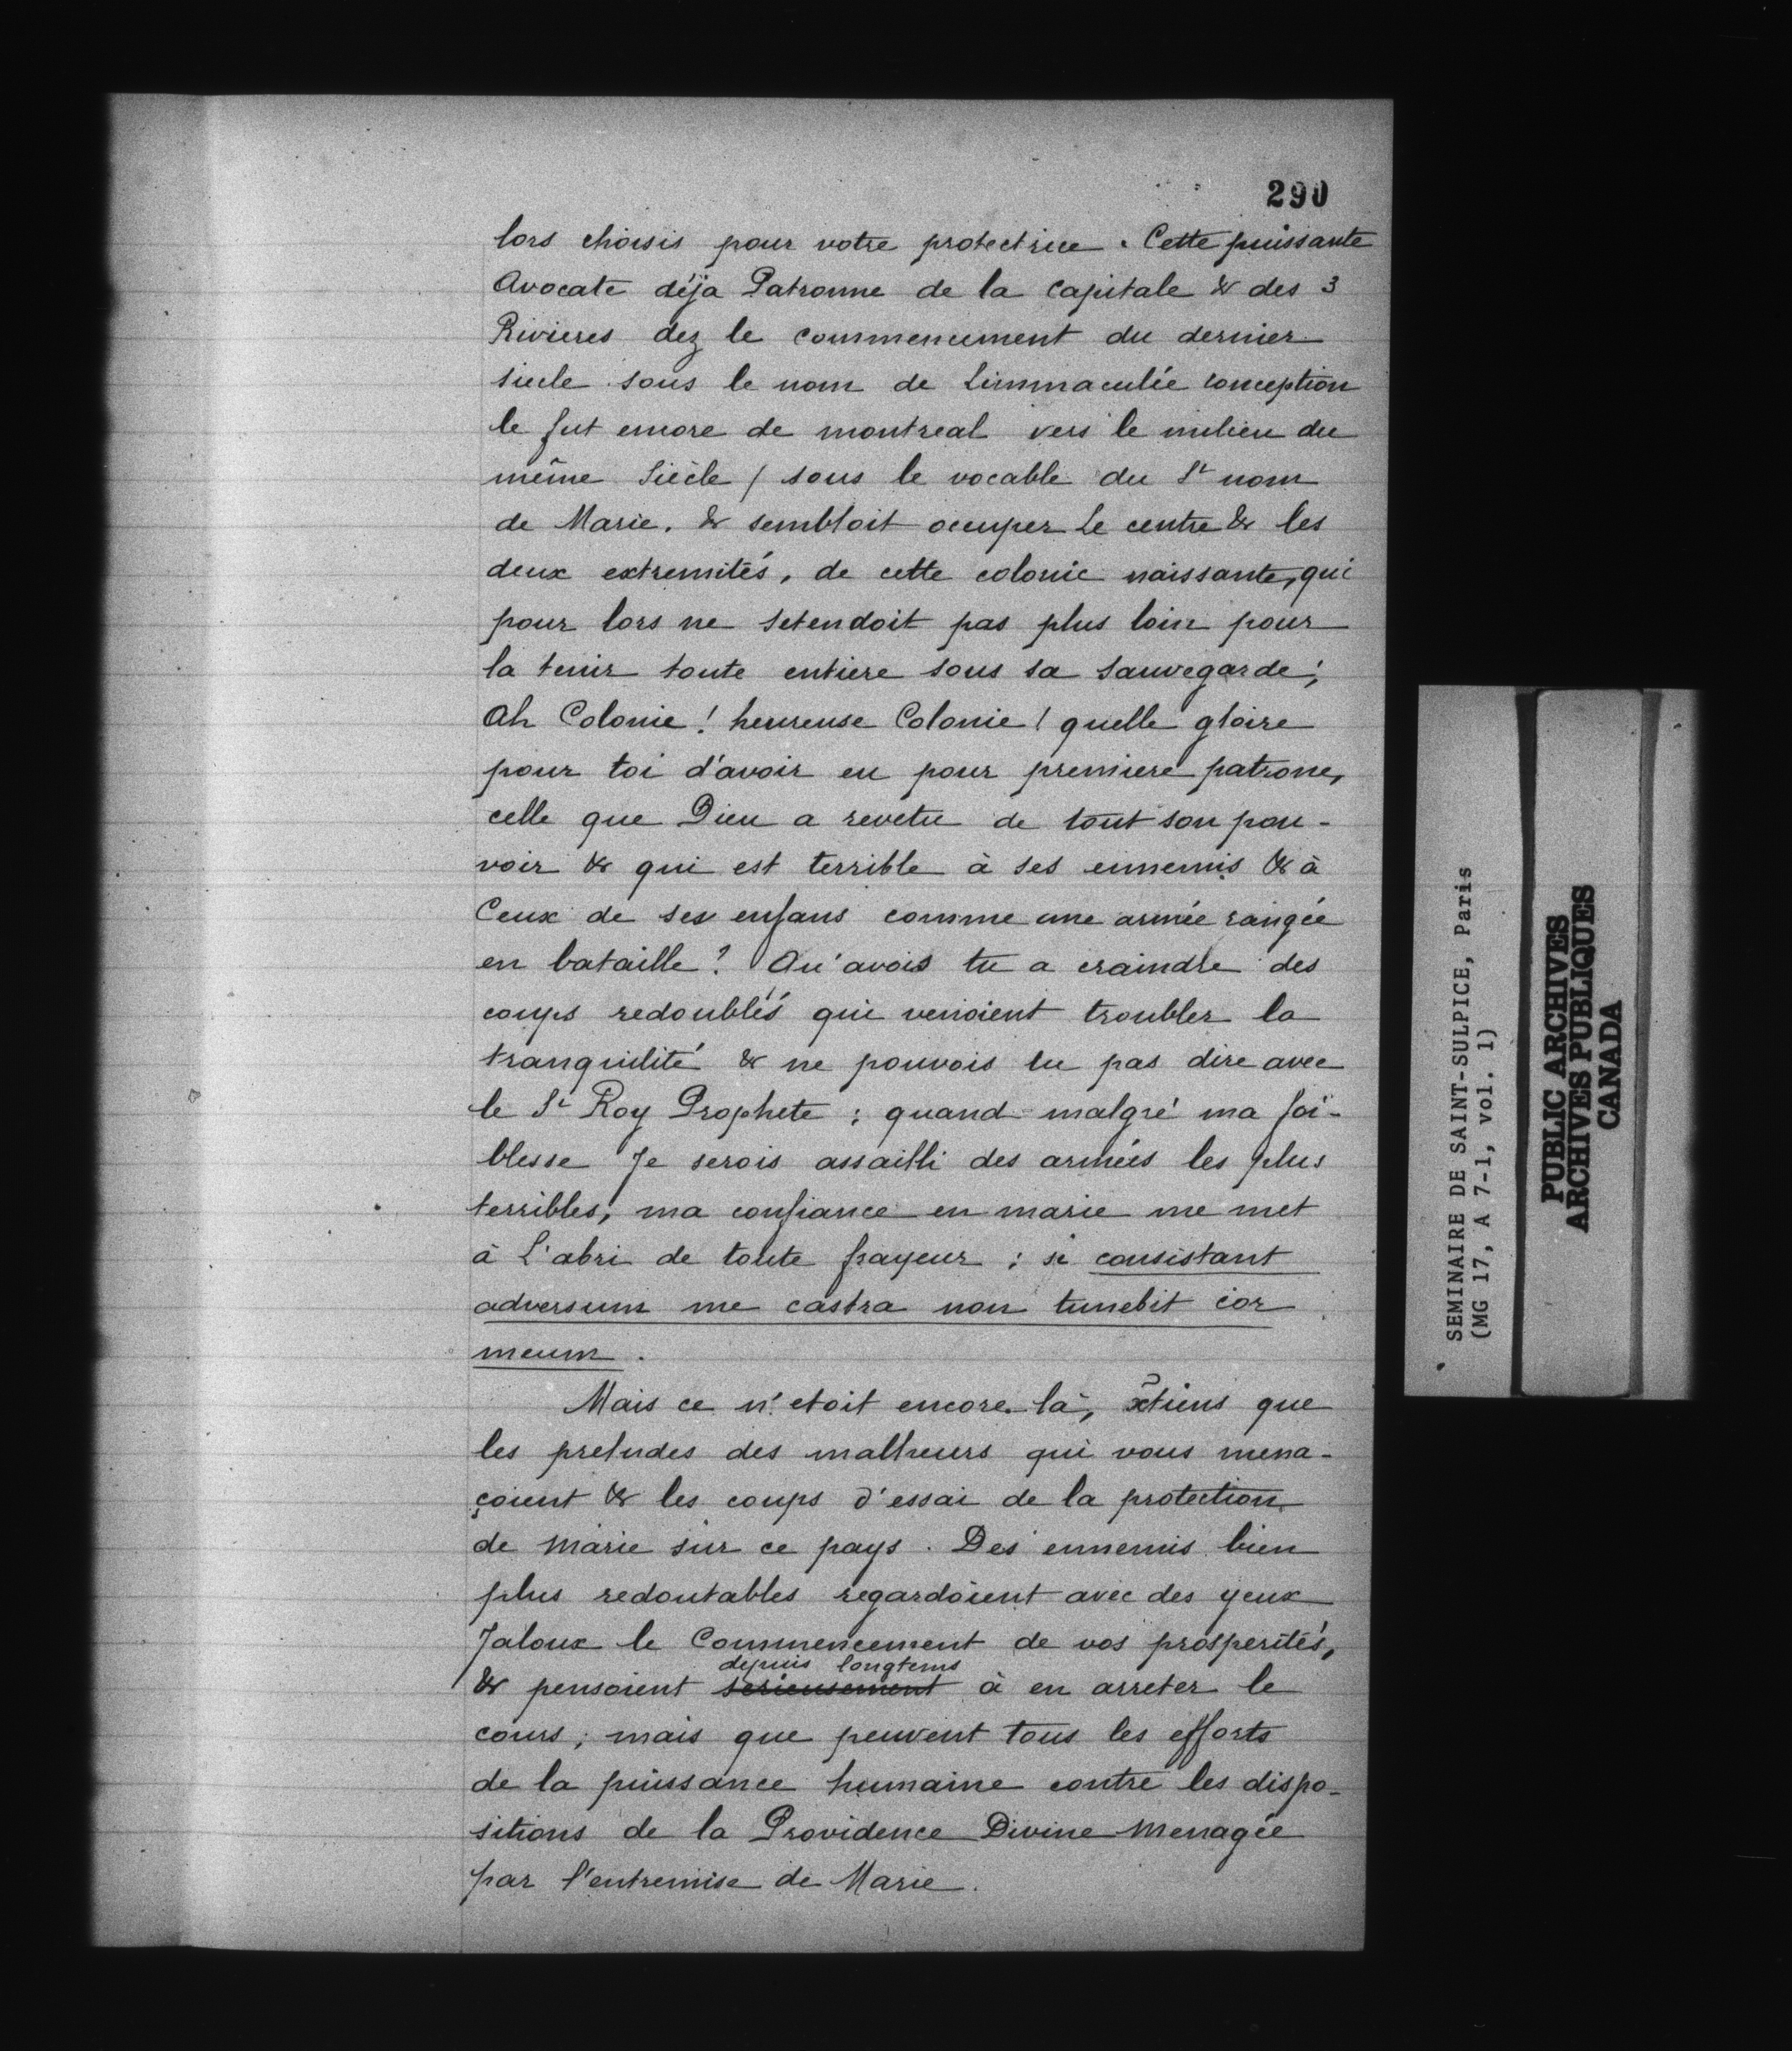 290
lors choisis pour votre protectrice. Cette puissante
Avocate déja Patronne de la Capitale & des 3
Rivieres dez le commencement du dernier
siecle sous le nom de Limmaculée conception
le fut encore de montreal vers le milieu du
même Siècle / sous le vocable du St nom
de Marie. & sembloit occuper Le centre & les
deux extremités, de cette colonie naissante, qui
pour lors ne setendoit pas plus loin pour
la tenir toute entiere sous sa sauvegarde;
Ah Colonie! heureuse Colonie! quelle gloire
pour toi d'avoir eu pour premiere patrone,
celle que Dieu a revetu de tout son pou-
voir & qui est terrible à ses ennemis & à
Ceux de ses enfans comme une armée rangée
en bataille? Qu'avois tu a craindre des
coups redoublés qui venoient troubler la
tranquilité & ne pouvois tu pas dire avec
le St Roy Prophete : quand malgré ma foi-
blesse Je serois assailli des armées les plus
terribles, ma confiance en marie me met
à L'abri de toute frayeur : si consistant
adversum me castra non timebit cor
meum.
Mais ce n'etoit encore là, x̃tiens que
les preludes des malheurs qui vous mena-
çoient & les coups d'essai de la protection
de Marie sur ce pays. Des ennemis bien
plus redoutables regardoient avec des yeux
Jaloux le Commencement de vos prosperités,
depuis longtems
& pensoient serieusement à en arreter le
cours; mais que peuvent tous les efforts
de la puissance humaine contre les dispo-
sitions de la Providence Divine Menagée
par l'entremise de Marie.
SEMINAIRE DE SAINT-SULPICE, Paris
(MG 17, A 7-1, vol. 1)
PUBLIC ARCHIVES
ARCHIVES PUBLIQUES
CANADA